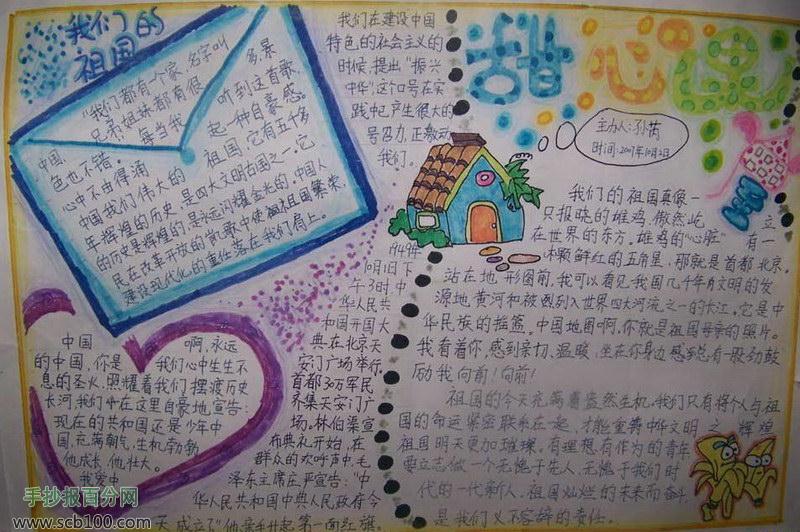 我们的
祖国
"我们都有个家,名字叫
兄弟姐妹都有很 多,景
每当我 听到这首歌
中国, 起一种自豪感。
色也不错。 祖国,它有五千多
心中不由得涌 是四大文明古国之一,它
中国我们伟大的
年辉煌的历史
的历史是辉煌的,是永远闪耀金光的。中国人
民在改革开放的凯歌中使祖国繁荣,
建设现代化的重任落在我们肩上。
我们在建设中国
特色的社会主义的
时候,提出"振兴
中华",这口号在实
践中已产生很大的
号召力,正激动
我们。
甜心课
主办人:孙茜
时间:2007年10月2日
我们的祖国真像一
只报晓的雄鸡,傲然屹 立
在世界的东方,雄鸡的"心脏" 有一
颗鲜红的五角星,那就是首都北京。
站在地形图前,我可以看见我国几千年文明的发
源地,黄河和被列入世界四大河流之一的长江。它是中
华民族的摇篮。中国地图啊,你就是祖国母亲的照片。
我看着你,感到亲切、温暖,坐在你身边感到总有一股劲鼓
励我向前!向前!
祖国的今天充满着盎然生机,我们只有将个人与祖
国的命运紧密联系在一起,才能重铸中华文明之辉煌
祖国明天更加璀璨。有理想有作为的青年
要立志做一个无愧于先人,无愧于我们时
代的一代新人,祖国灿烂的未来而奋斗
是我们义不容辞的责任。
1949年
10月1日下
午3时,中
华人民共
和国开国大
典在北京天
安门广场举行,
首都30万军民
齐集天安门广
场。林伯渠宣
布典礼开始,在
群众的欢呼声中,毛
泽东主席庄严宣告:"中
华人民共和国中央人民政府今
天成立了"他亲手升起第一面红旗。
中国 啊,永远
的中国,你是 我们心中生生不
息的圣火,照耀着我们摆渡历史
长河,我们在这里自豪地宣告:
现在的共和国还是少年中
国,充满朝气,生机勃勃
他成长,他壮大。
我爱中
手抄报百分网
www.scb100.com